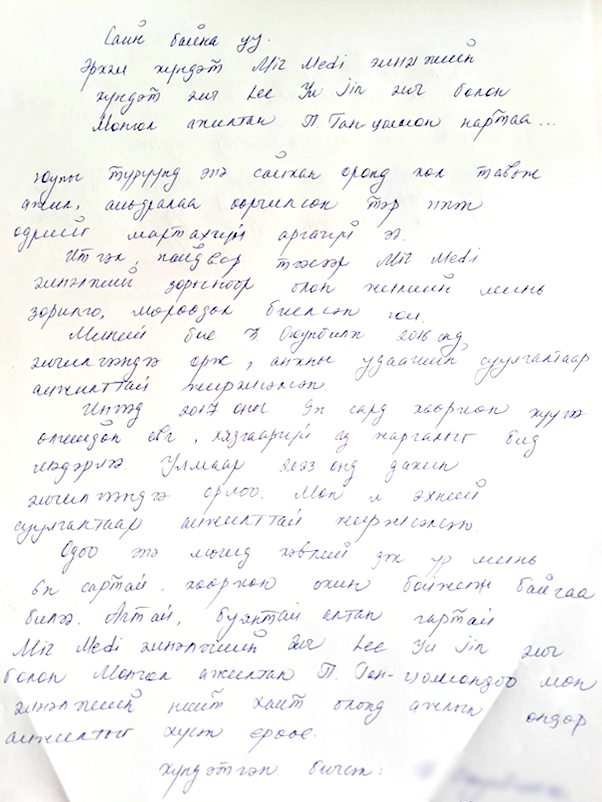 Сайн байна уу.
Эрхэм хүндэт Miz Medi эмнэлгийн
хүндэт эмч Lee Yu Jin эмч болон
Монгол ажилтан П. Ган-цолмон нартаа...
Юуны түрүүнд энэ сайхан оронд хөл тавьж
ажил, амьдралаа өөрчилсөн тэр нэгэн
өдрийг мартахгүй аргагүй ээ.
Итгэл, найдвар тээсээр Miz Medi
эмнэлгийг зорьсноор олон жилийн минь
зорилго, мөрөөдөл биелсэн юм.
Миний бие Оюунбилэг 2016 онд
эмчилгээндээ орж, анхны удаагийн суулгалтаар
амжилттай жирэмсэлсэн.
Ингээд 2017 оны сард хөөрхөн хүүгээ
өлгийдөн авч, хязгааргүй аз жаргалыг бид
мэдэрлээ. Улмаар 2023 онд дахин
эмчилгээндээ орлоо. Мөн л эхний
суулгалтаар амжилттай жирэмсэлсэн.
Одоо энэ мөчид хэвлий дэх үр минь
сартай. хөөрхөн охин бойжиж байгаа
билээ. Ачтай, буянтай алтан гартай
Miz Medi эмнэлгийн эмч Lee Yu Jin эмч
болон Монгол ажилтан П. Ган-цолмондоо мөн
эмнэлгийн нийт хамт олонд ажлын өндөр
амжилтыг хүсэн ерөөе.
хүндэтгэн бичсэн: